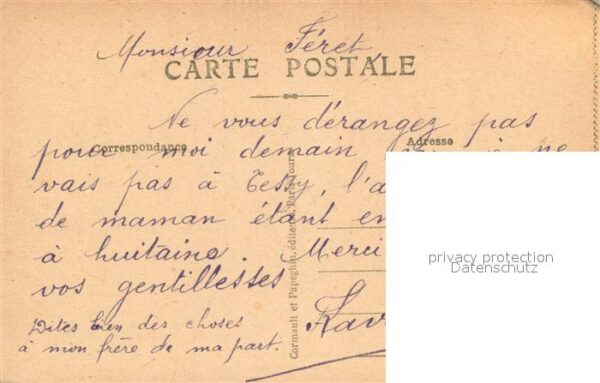 Monsieur Féret,
CARTE POSTALE
Ne vous dérangez pas
Correspondance
Adresse
pour moi demain je ne
vais pas à Tessy, l'a
de maman étant en
à huitaine. Merci
vos gentillesses
Dites bien des choses
à mon frère de ma part.
Cormault et Papeghin, éditeurs, Paris-Tours
privacy protection
Datenschutz